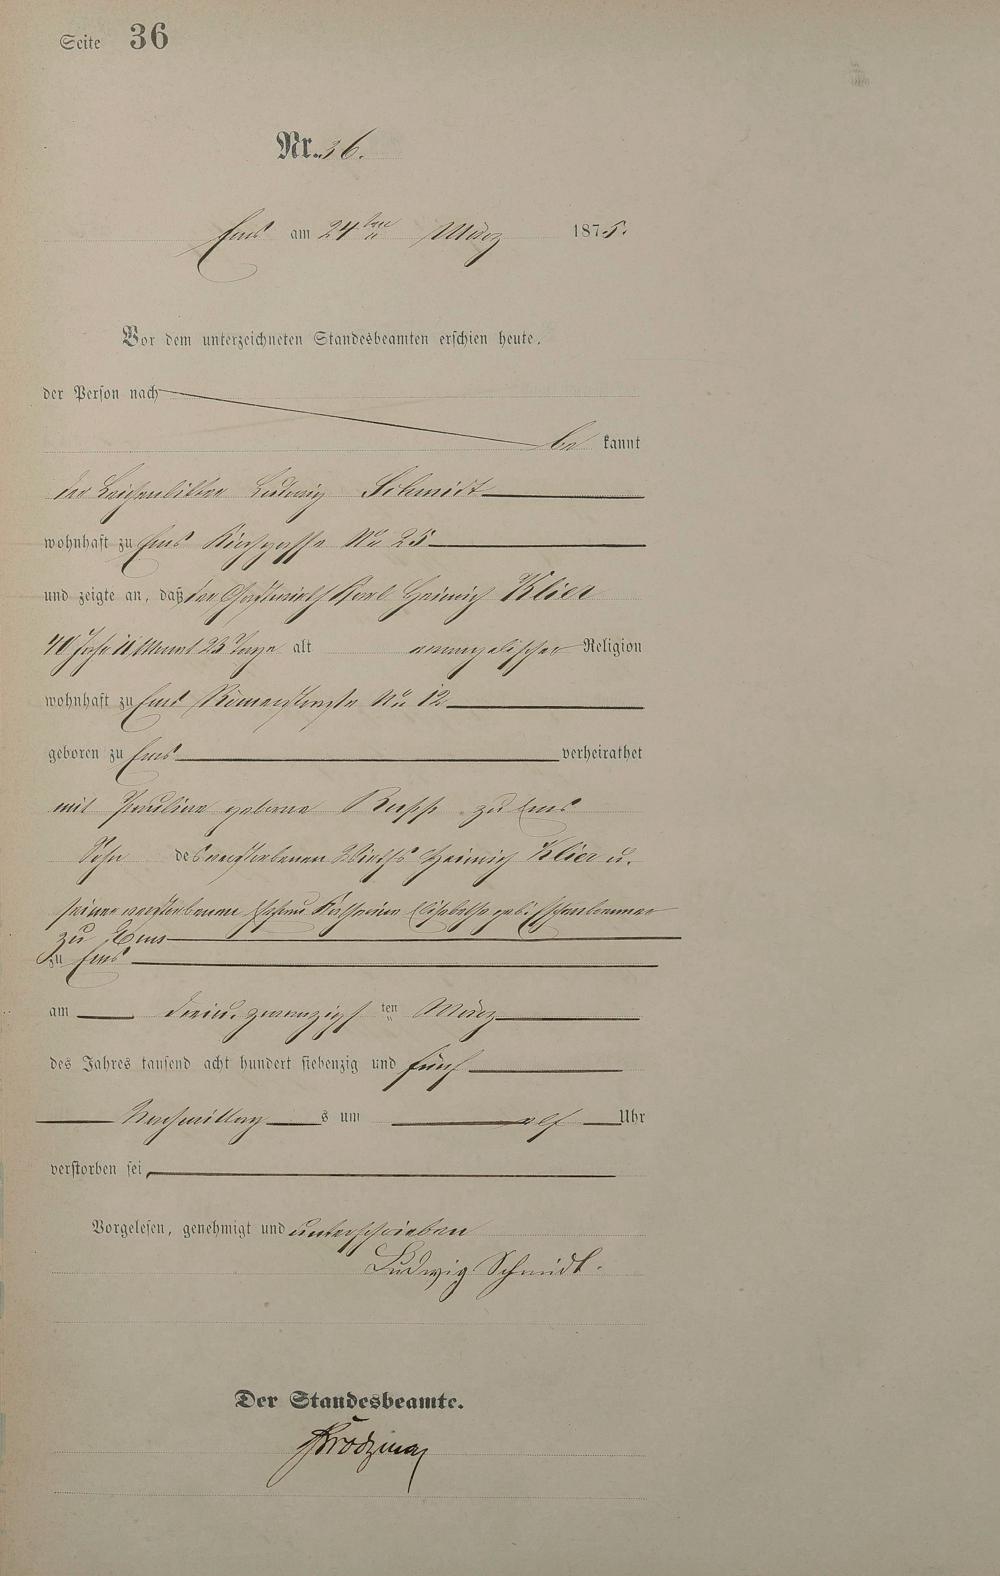 Seite 36
Nr. 36.
Ems am 24ten März 1875.
Vor dem unterzeichneten Standesbeamten erschien heute,
der Person nach
be kannt
der Leichenbitter Ludwig Schmidt
wohnhaft zu Ems Kirchgasse Nu 25
und zeigte an, daß der Gastwirth Karl Heinrich Klier
40 Jahr 11 Monat 23 Tage alt evangelischer Religion
wohnhaft zu Ems Römerstraße Nu 12
geboren zu Ems verheirathet
mit Pauline geborne Rupp zu Ems
Sohn des verstorbenen Wirths Heinrich Klier u.
seiner verstorbenen Ehefrau Katharina Elisabetha geb.
zu Ems
zu Ems
am dreiu. zwanzigs ten März
des Jahres tausend acht hundert siebenzig und fünf
Nachmittag s um elf Uhr
verstorben sei
Vorgelesen, genehmigt und unterschrieben
Ludwig Schmidt.
Der Standesbeamte.